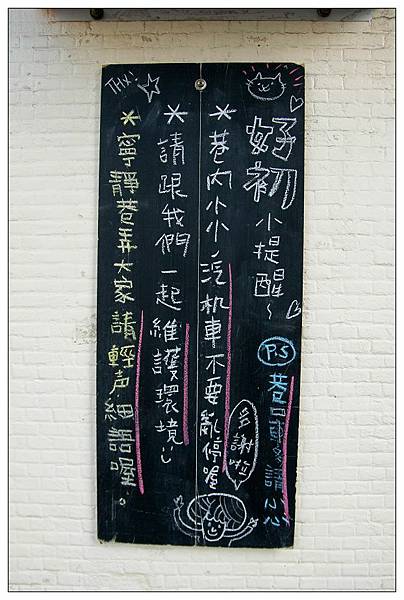 好初小提醒~
P.S 巷口
請小心
*巷內小小,汽机車不要亂停喔
多謝啦
*請跟我們一起維護環境
*寧靜巷弄大家請輕声細語喔
THX!